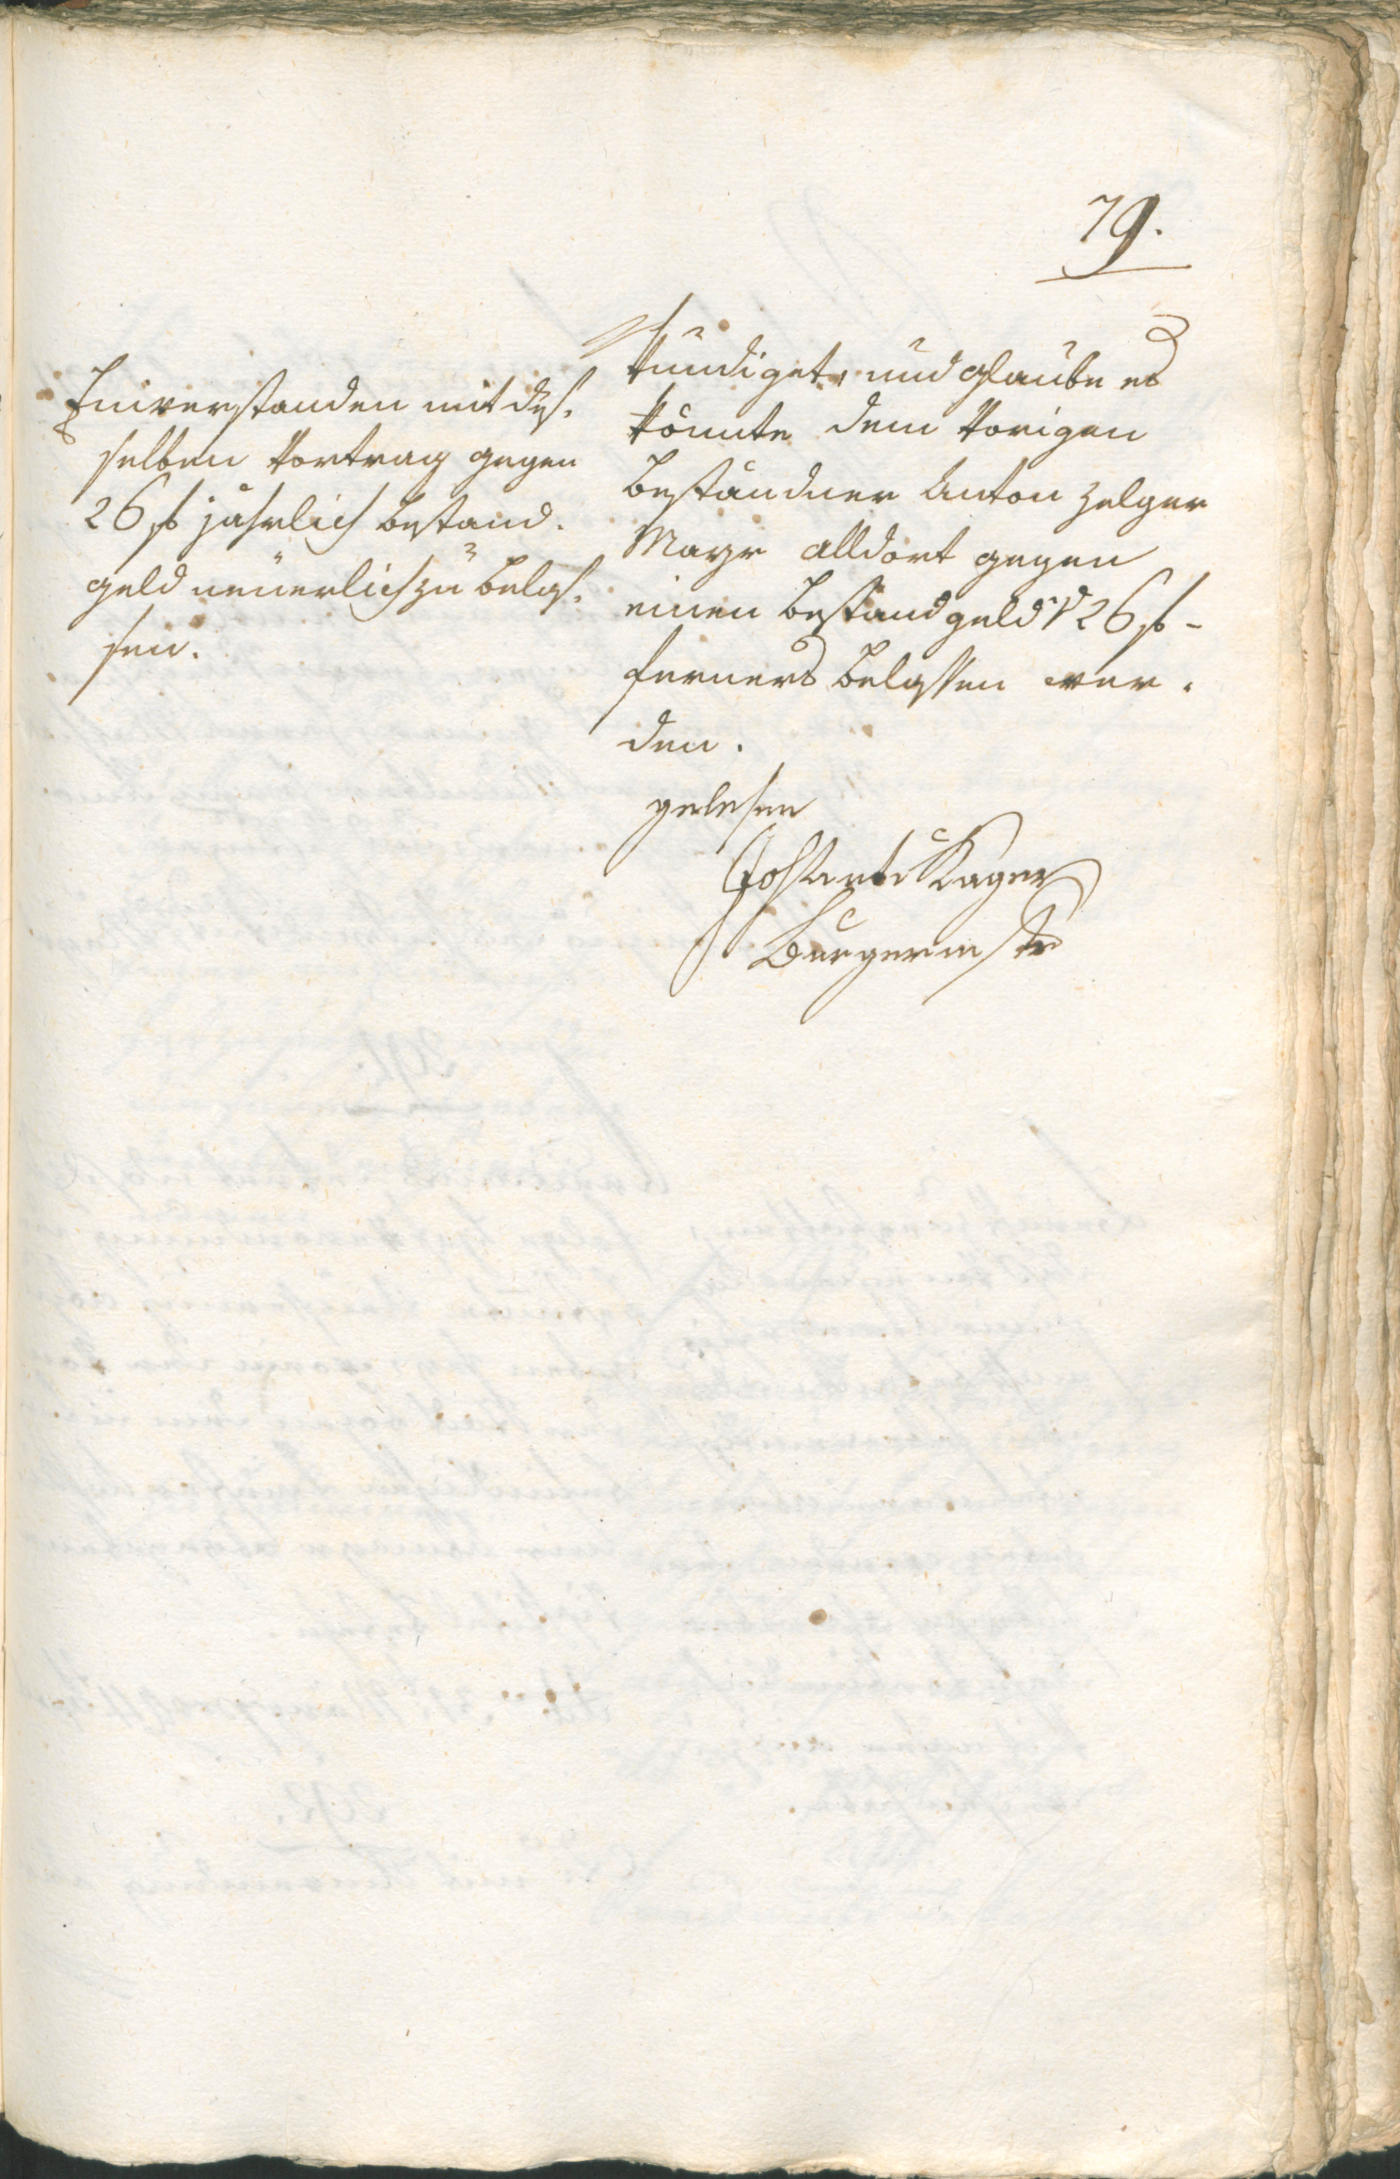 79.
Einverstanden mit des,
selben Vortrag gegen
26 f jährlich Bestand.
geld neüerlich zu belas,
sen.
kündiget, und glaube es
könnte dem vorigen
Beständner Anton Zelger
Mayr alldort gegen
einen Bestandgeld p 26 f -
ferners belassen wer,
den.
gelesen
Kager
Burgermstr